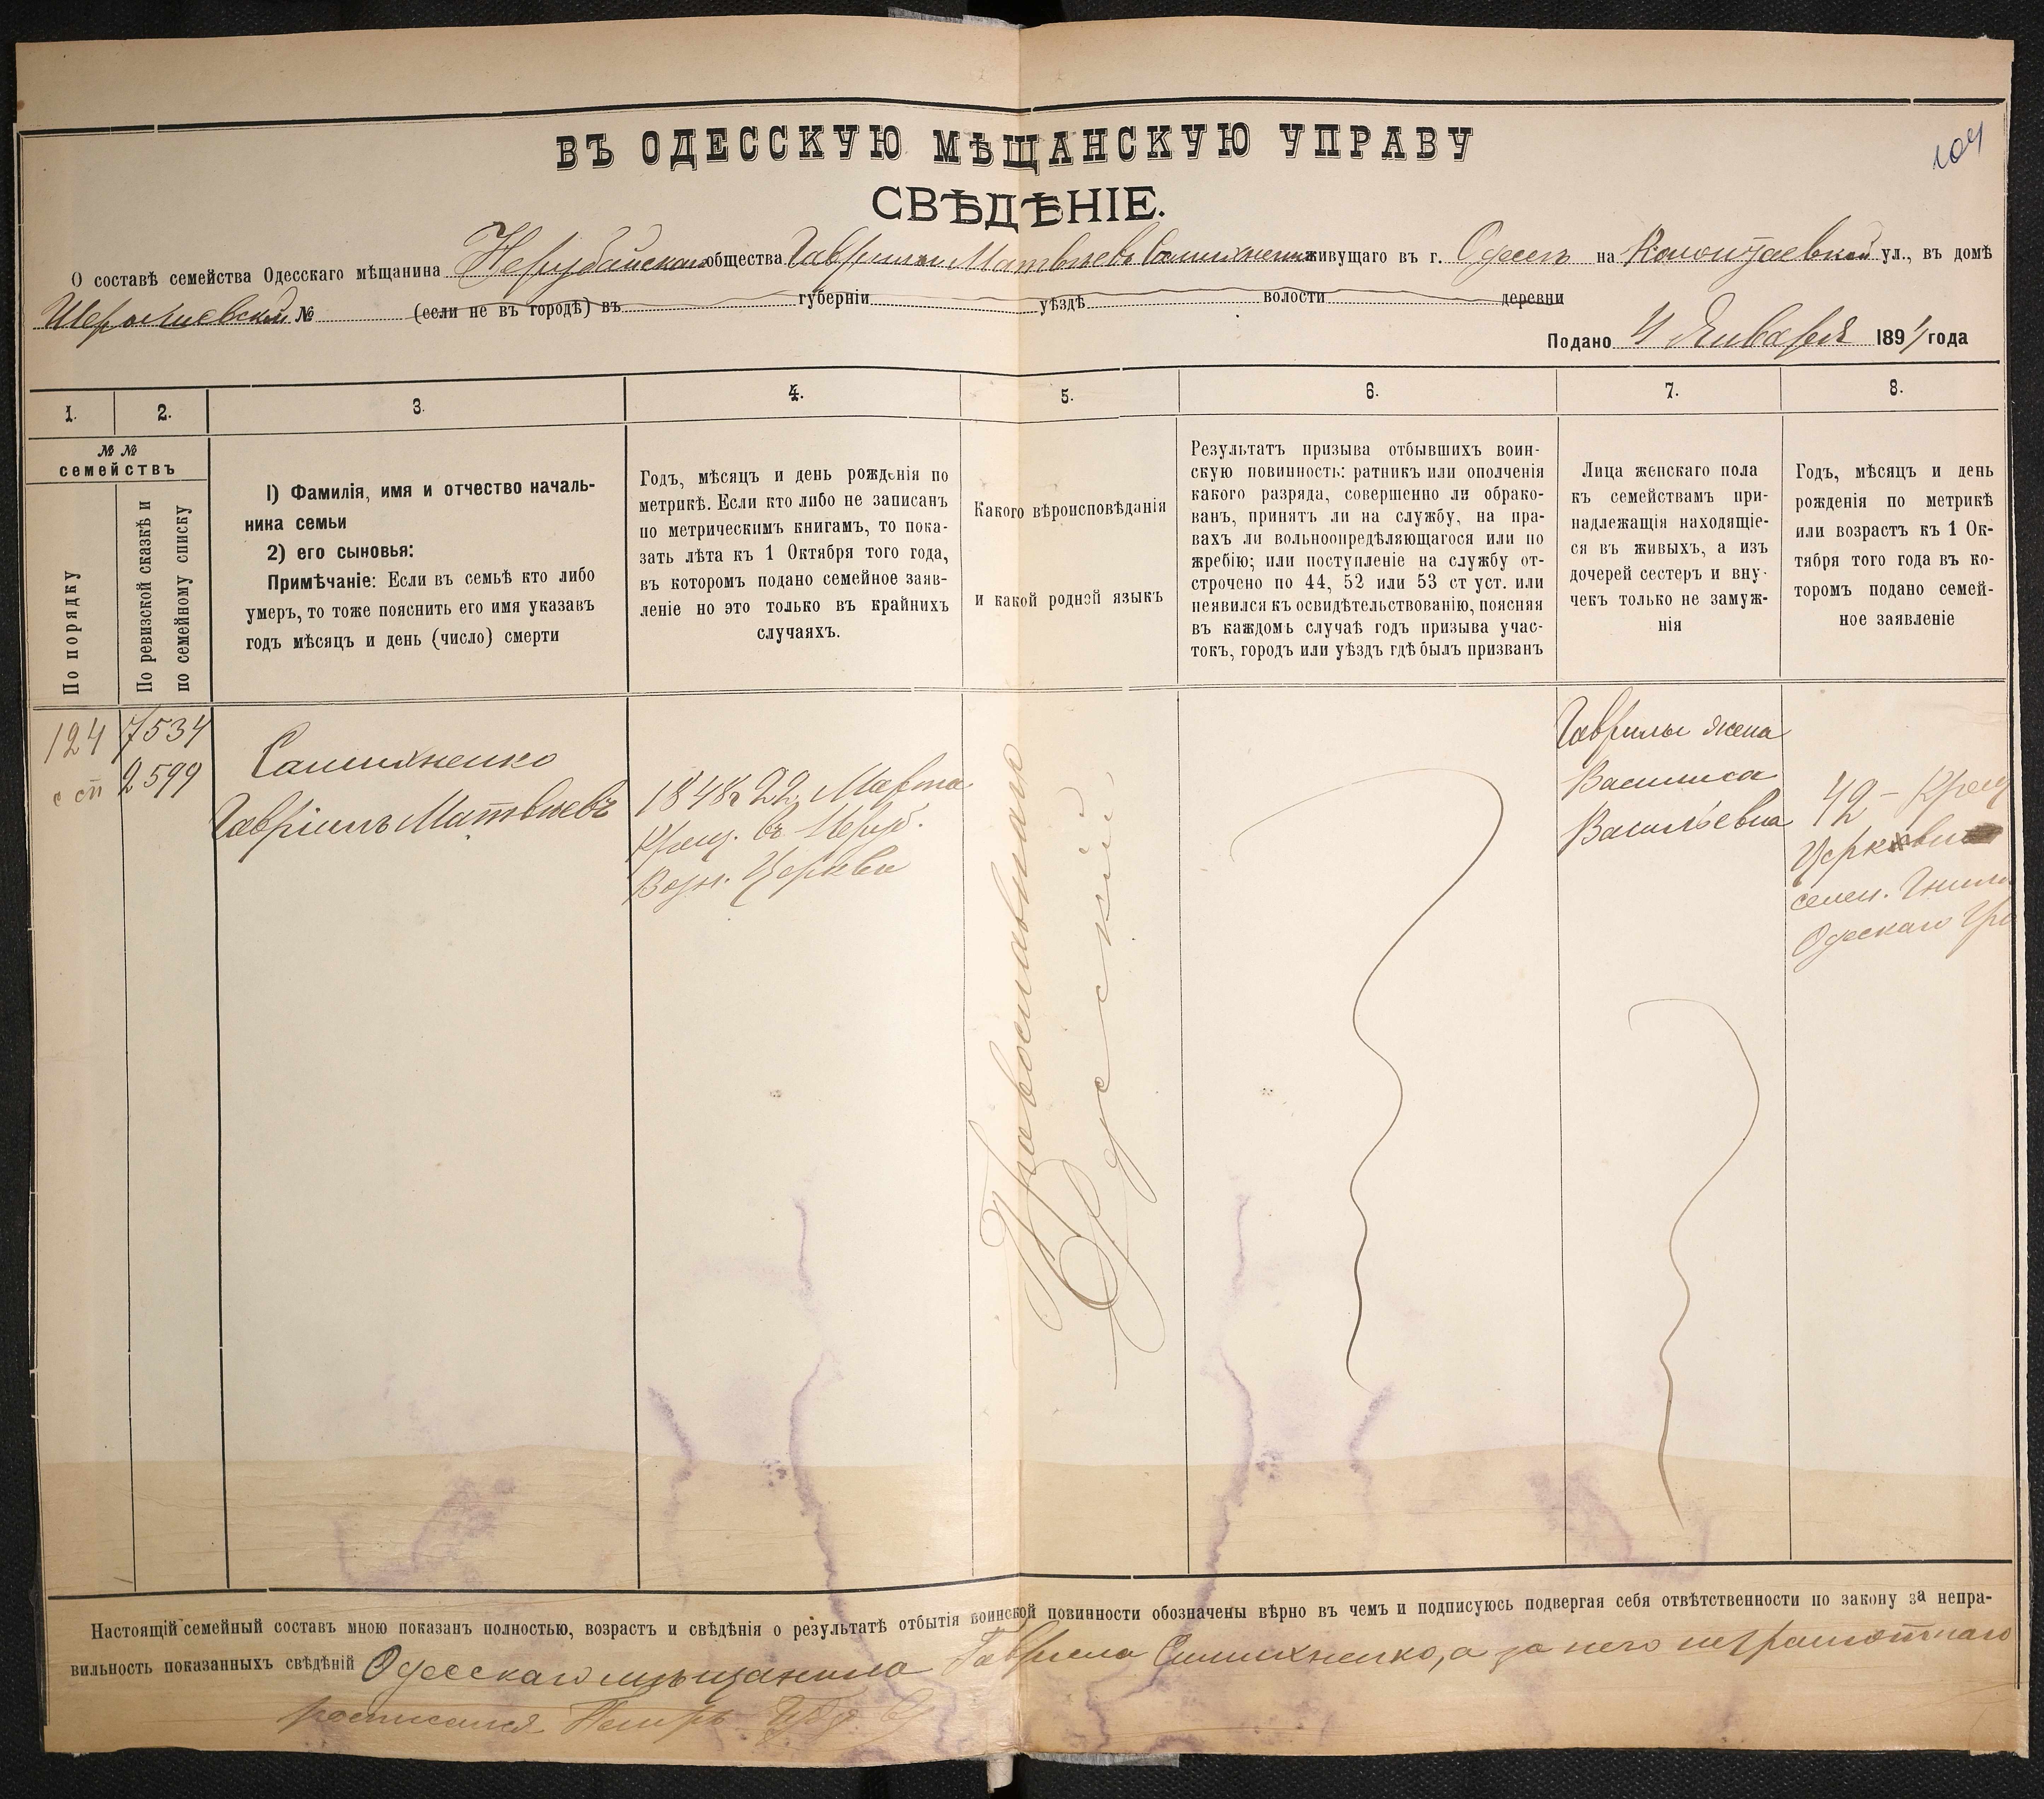 104
ВЪ ОДЕССКУЮ МѢЩАНСКУЮ УПРАВУ
СВѢДѢНІЕ.
О составѣ семейства Одесскаго мѣщанина Нерубайскаго общества Гаврилы Матвѣева живущаго въ г. Одессѣ на ул., въ домѣ
№ (если не въ городѣ) въ губерніи уѣздѣ волости деревни
Подано 4 Января 1891 года
1. 2. 3. 4. 5. 6. 7. 8.
№ №
семействъ
По порядку
По ревизской сказкѣ и
по семейному списку
1) Фамилія, имя и отчество началь-
ника семьи
2) его сыновья:
Примѣчаніе: Если въ семьѣ кто либо
умеръ, то тоже пояснить его имя указавъ
годъ мѣсяцъ и день (число) смерти
Годъ, мѣсяцъ и день рожденія по
метрикѣ. Если кто либо не записанъ
по метрическимъ книгамъ, то пока-
зать лѣта къ 1 Октября того года,
въ которомъ подано семейное заяв-
леніе но это только въ крайнихъ
случаяхъ.
Какого вѣроисповѣданія
и какой родной языкъ
Результатъ призыва отбывшихъ воин-
скую повинность: ратникъ или ополченія
какого разряда, совершенно ли обрако-
ванъ, принятъ ли на службу, на пра-
вахъ ли вольноопредѣляющагося или по
жребію; или поступленіе на службу от-
строчено по 44, 52 или 53 ст уст. или
неявился къ освидѣтельствованію, поясняя
въ каждомъ случаѣ годъ призыва учас-
токъ, городъ или уѣздъ гдѣ былъ призванъ
Лица женскаго пола
къ семействамъ при-
надлежащія находящіе-
ся въ живыхъ, а изъ
дочерей сестеръ и вну-
чекъ только не замуж-
нія
Годъ, мѣсяцъ и день
рожденія по метрикѣ
или возрастъ къ 1 Ок-
тября того года въ ко-
торомъ подано семей-
ное заявленіе
124
7534
2599
Гавріилъ Матвѣевъ
1848 г 22 Марта
Крещ. въ Неруб.
Возн. Церкви
Православная
Русскій
Гаврилы жена
Василиса
Васильевна
42 - Крещ
Церкви
селен.
Одескаго
Настоящій семейный составъ мною показанъ полностью, возрастъ и свѣдѣнія о результатѣ отбытія воинской повинности обозначены вѣрно въ чемъ и подписуюсь подвергая себя отвѣтственности по закону за непра-
вильность показанныхъ свѣдѣній Одесскаго мѣщанина Гаврила а за него неграмотнаго
росписался Петръ